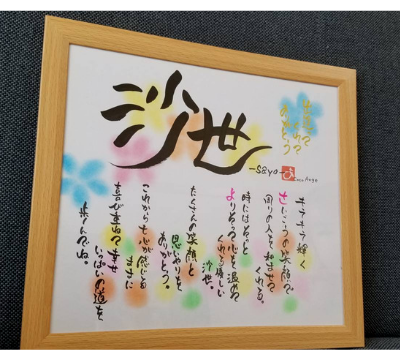 沙世
-Sayo-
キラキラ輝く
さいこうの笑顔で
周りの人を和ませて
くれる。
時にはそっと
より添う心を温めて
くれる優しい
沙世。
たくさんの笑顔と
思いやりを
ありがとう。
これからも心が感じる
ままに
喜び重ねて幸せ
いっぱいの道を
歩んでね。